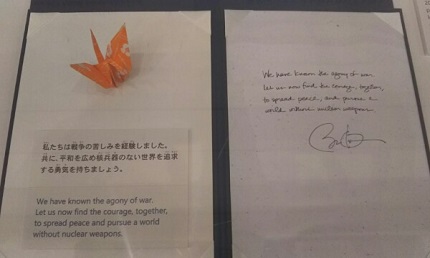 私たちは戦争の苦しみを経験しました。
共に、平和を広め核兵器のない世界を追求
する勇気を持ちましょう。
We have known the agony of war.
Let us now find the courage, together,
to spread peace and pursue a world
without nuclear weapons.
We have known the agony of war.
Let us now find the courage, together,
to spread peace, and pursue a
world without nuclear weapons.